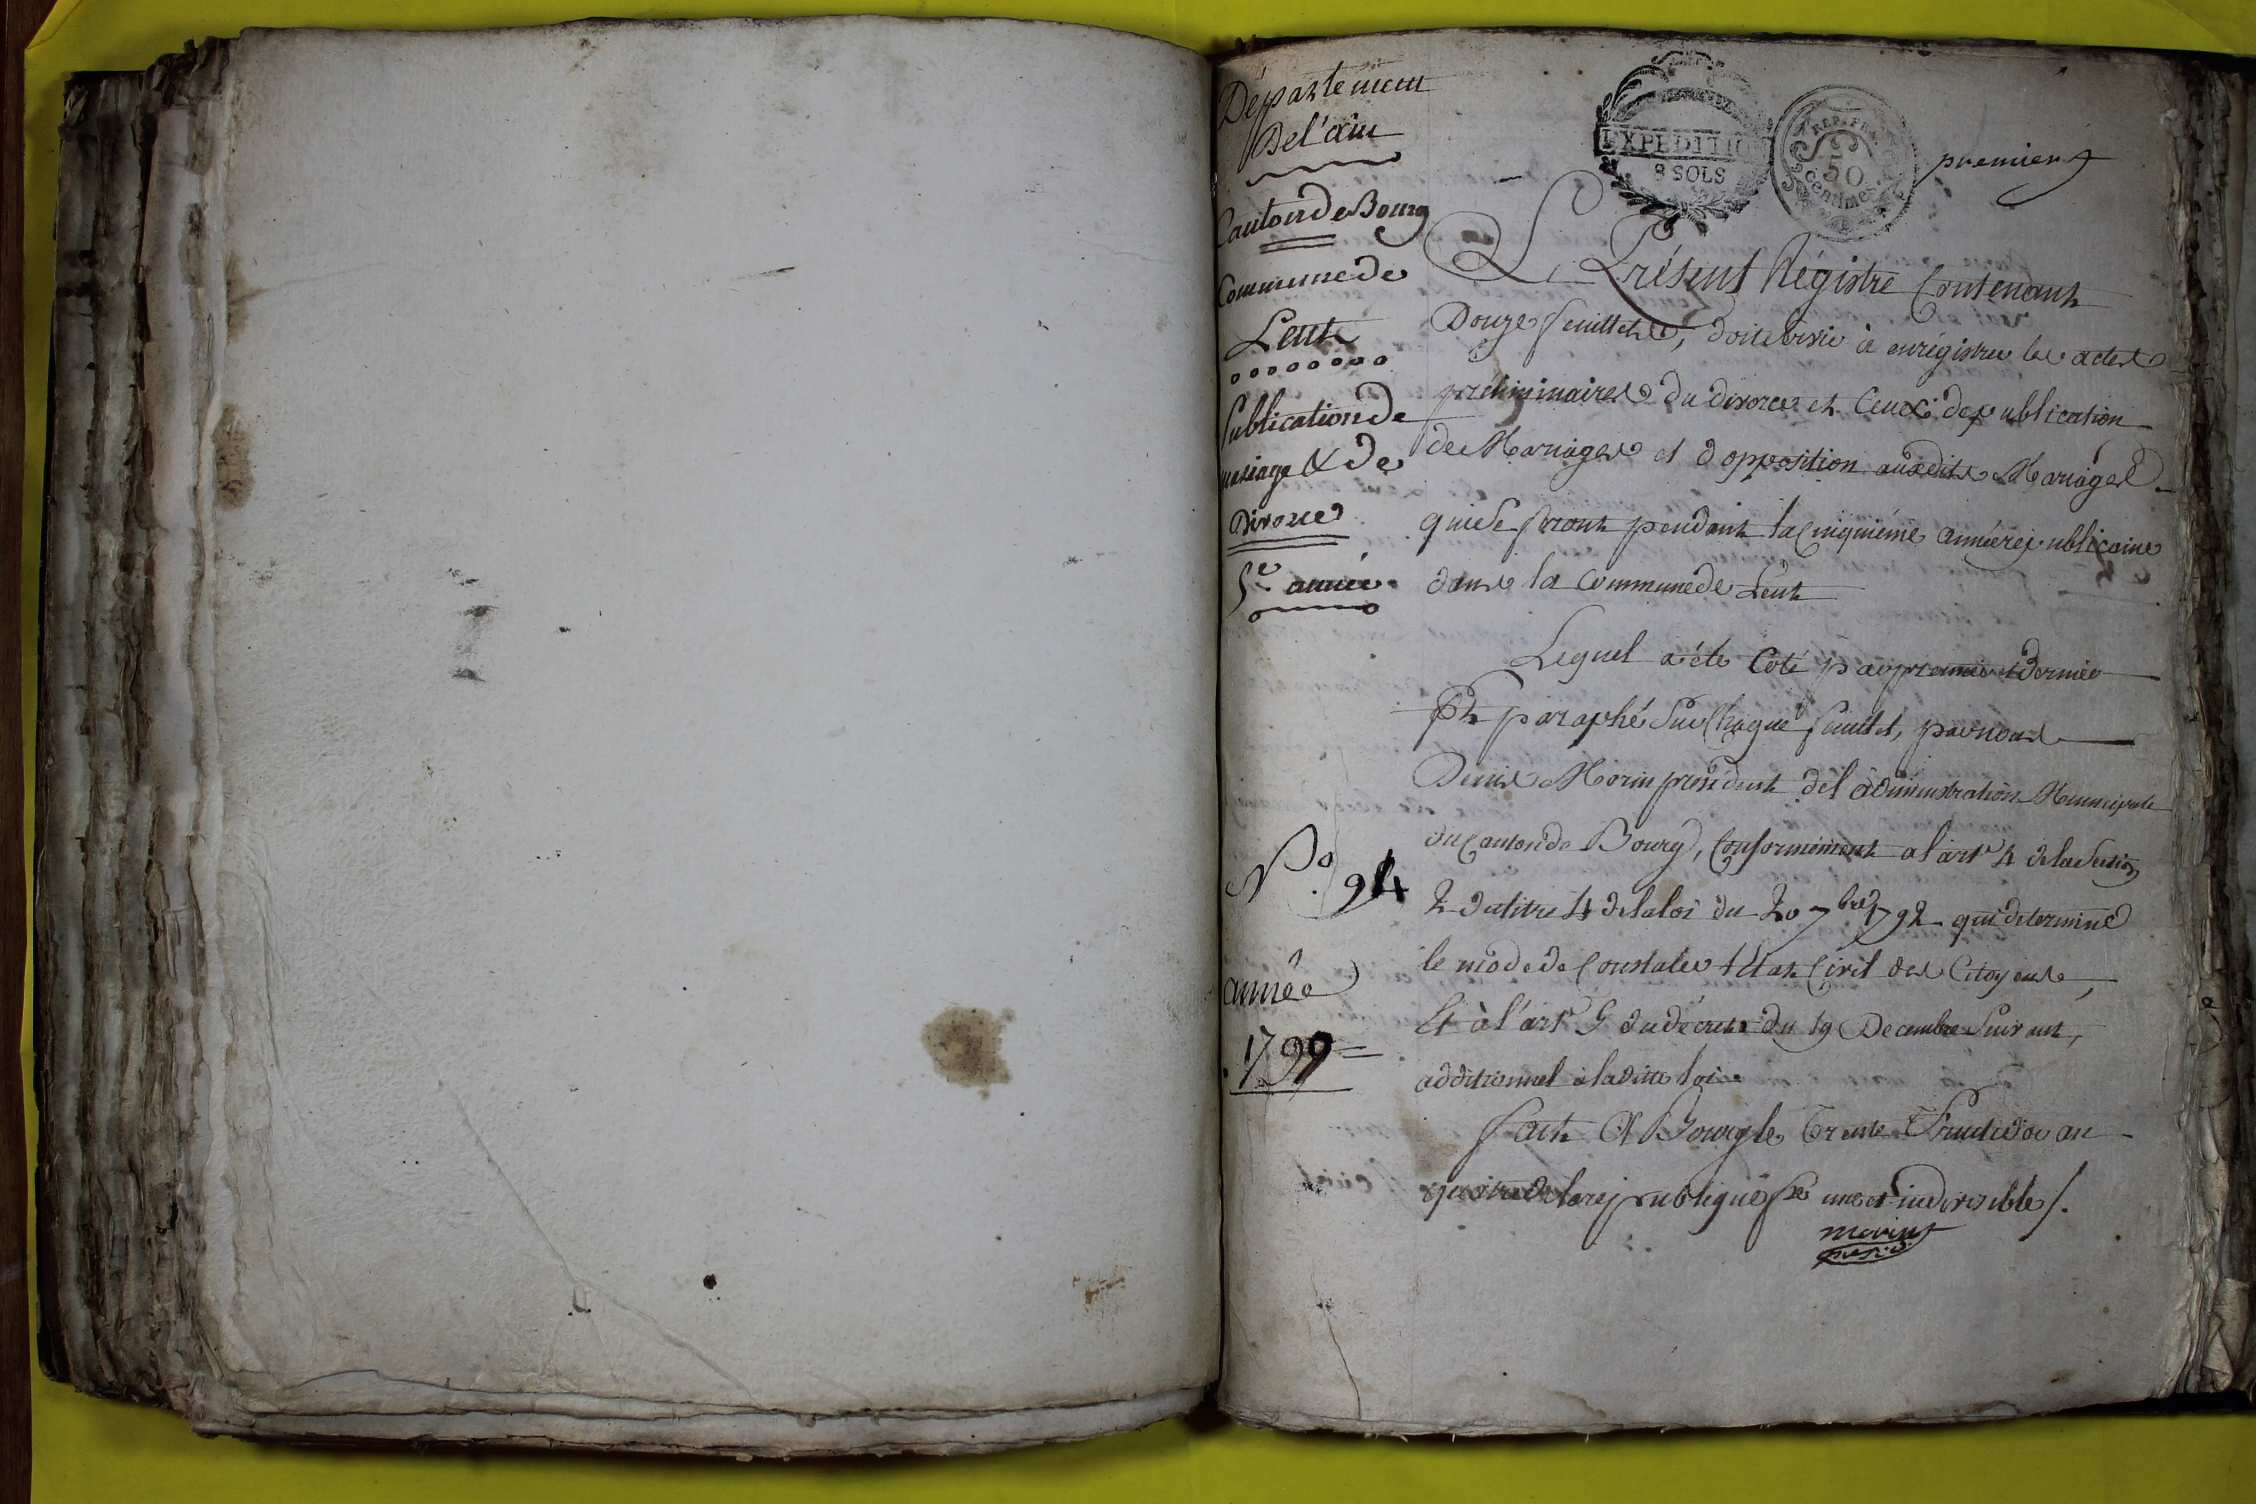 Département
De l'ain
Canton de Bourg
Commune de
Lent
Publication de
mariage & de
Divorce
5e année
N.o 94
année
1799
EXPEDITION
8 SOLS
REP. FRA.
50
centimes
premier
Le Présent Régistre Contenant
Douze feuillets, doit servir à enrégistrer les actes
préliminaires du divorce et Ceux de publication
de Mariages et d'opposition auxdits Mariages
qui se feront pendant la Cinquiéme année républicaine
dans la commune de Lent
Lequel a été Coté par premier et dernier
Et paraphé sur Chaque feuillet, par nous
Denis Morin président de l'administration Municipale
du Canton de Bourg, Conformément a l'art. 4 de la Section
2 du titre 4 de la loi du 20 7bre 1792 qui détermine
le mode de Constater l'Etat Civil des Citoyens,
Et à l'art. 5 du décret du 19 Decembre Suivant,
additionnel à laditte loi
Fait A Bourg le Trente Fructidor an
quatre de la république fse une et indivisible /.
morin
présid.